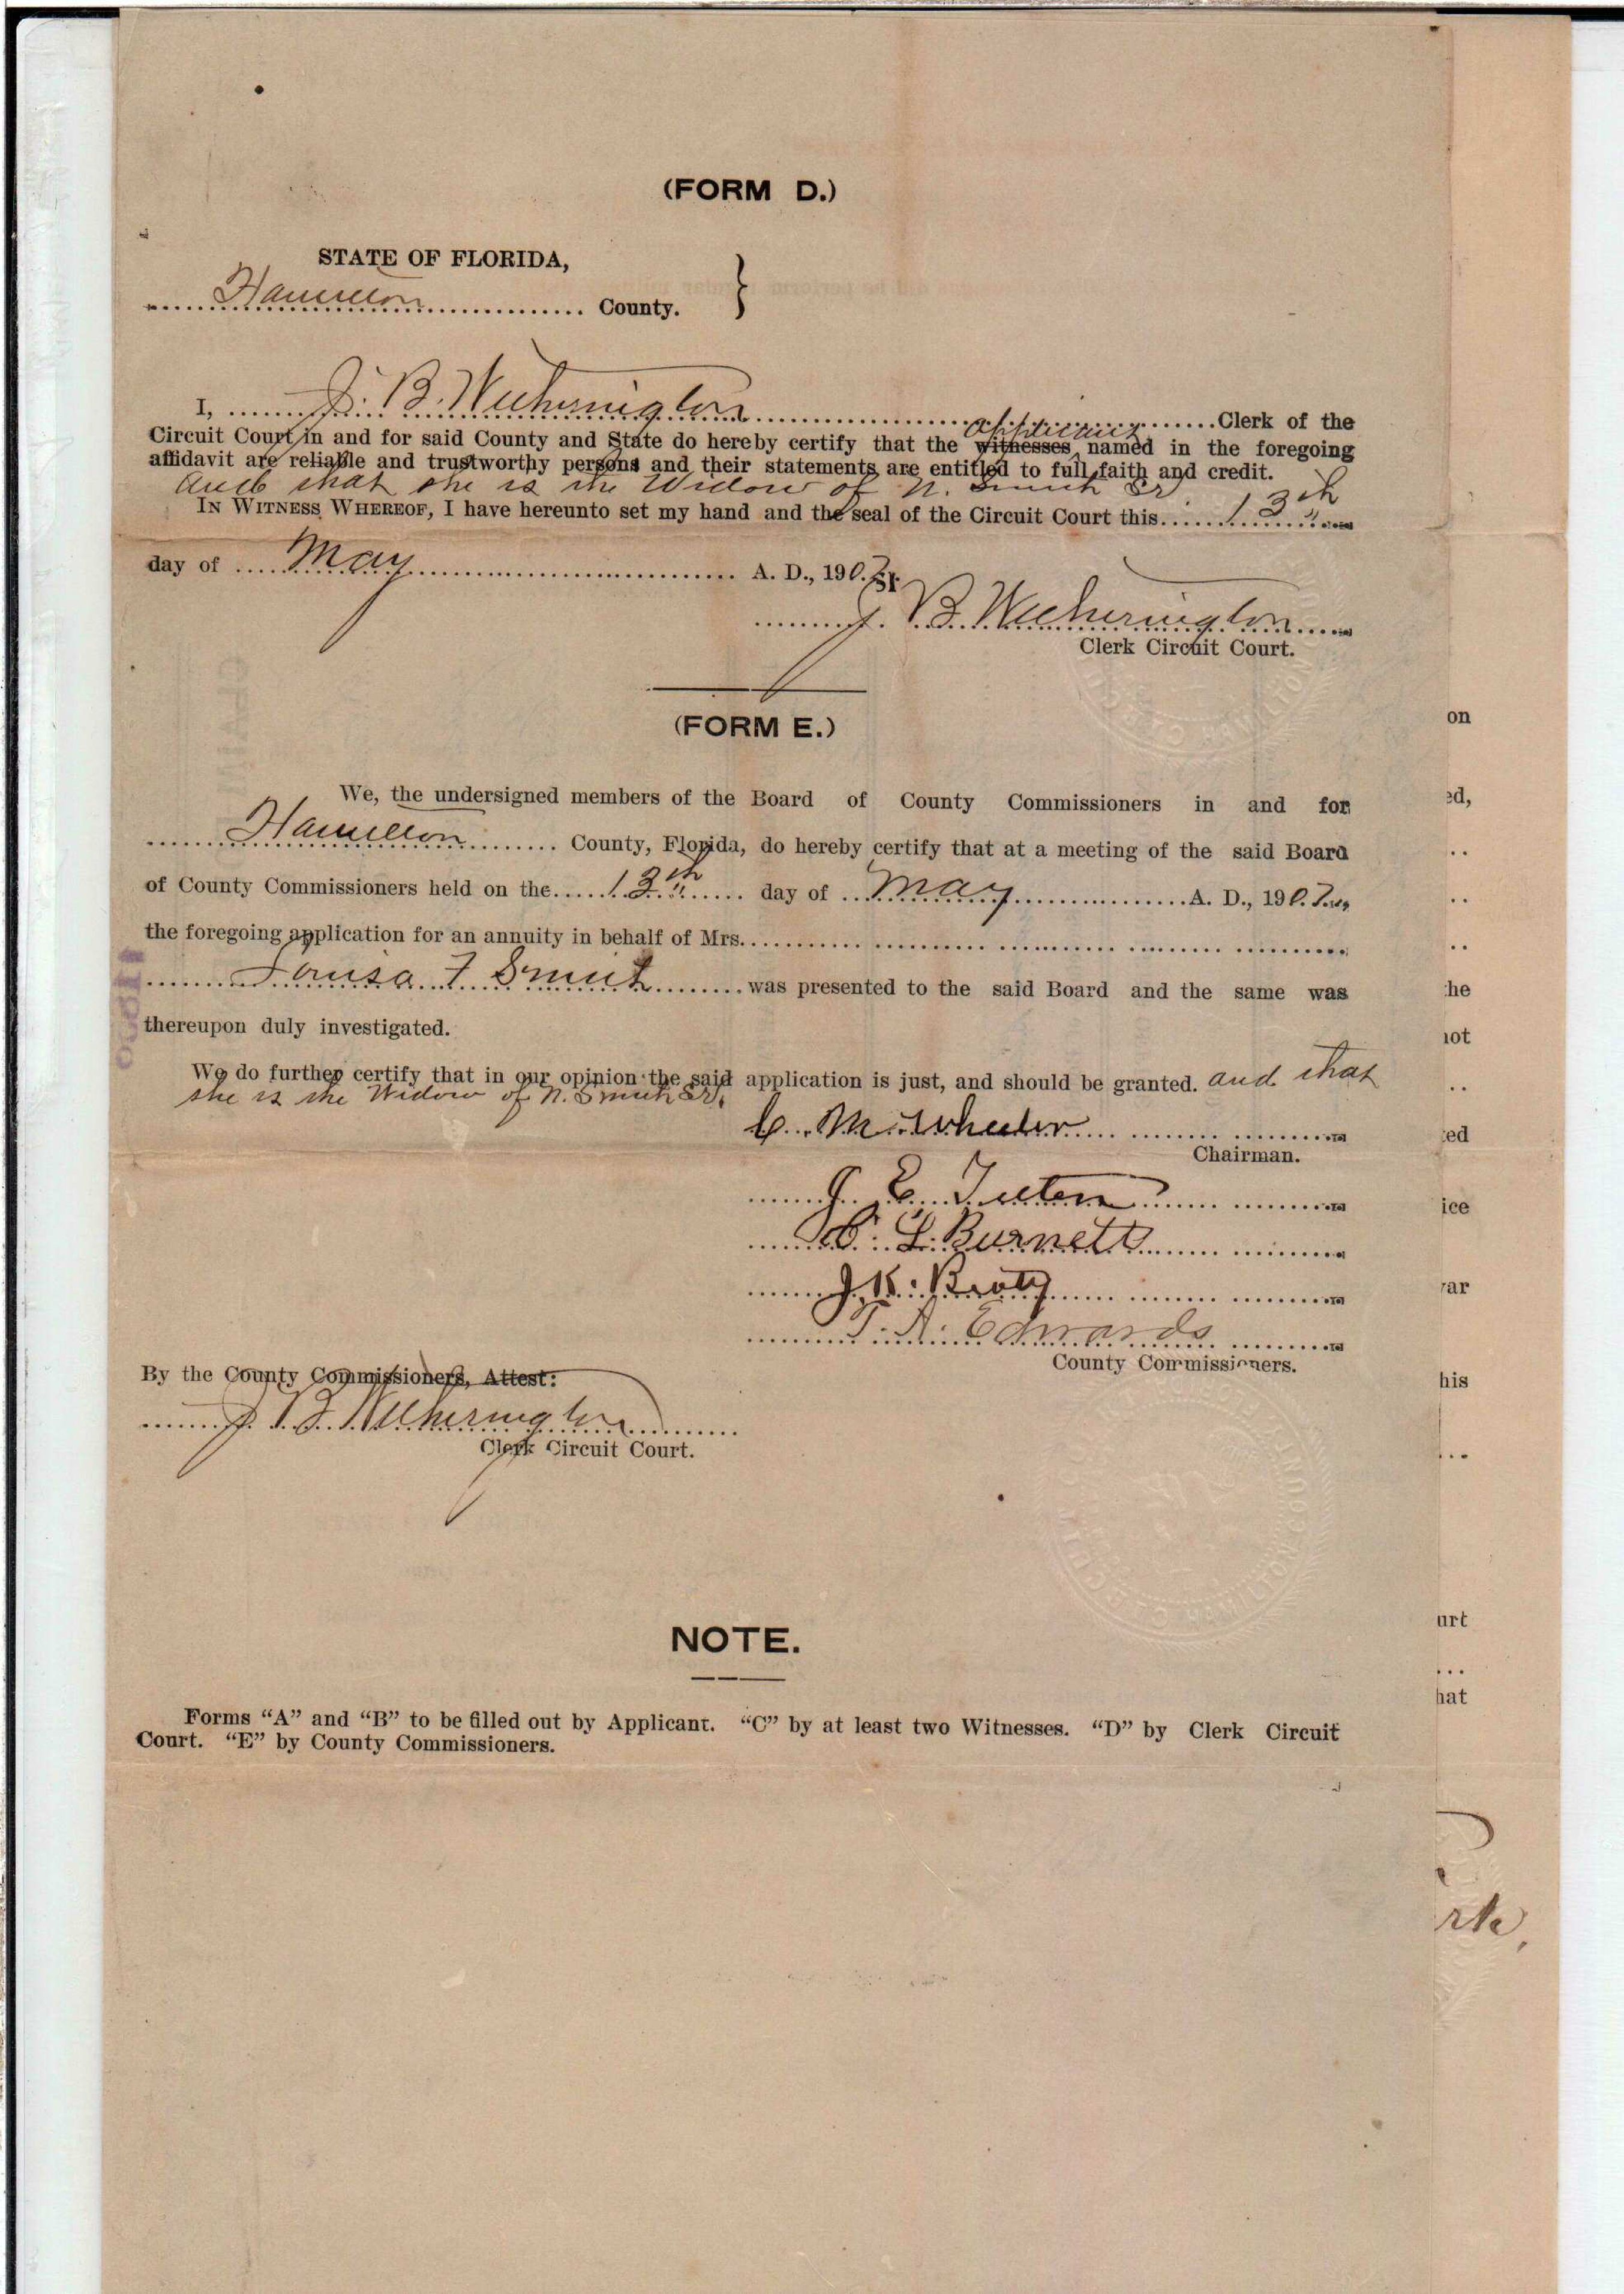 (FORM D.)
STATE OF FLORIDA,
Hamilton County.
I, J. B. Witherington Clerk of the
applicant
Circuit Court in and for said County and State do hereby certify that the witnesses named in the foregoing
affidavit are reliable and trustworthy persons and their statements are entitled to full faith and credit.
and that she is the Widow of N. Smith Sr
IN WITNESS WHEREOF, I have hereunto set my hand and the seal of the Circuit Court this 13th
day of May A. D., 190
J. B. Witherington
Clerk Circuit Court.
(FORM E.)
We, the undersigned members of the Board of County Commissioners in and for
Hamilton County, Florida, do hereby certify that at a meeting of the said Board
of County Commissioners held on the 13th day of May A. D., 1907
the foregoing application for an annuity in behalf of Mrs.
Louisa F Smith was presented to the said Board and the same was
thereupon duly investigated.
We do further certify that in our opinion the said application is just, and should be granted. and that
she is the Widow of N. Smith Sr.
C. M. Wheeler
Chairman.
J. E. Tuten
L. Burnett
J. K.
T. A. Edwards
County Commissioners.
By the County Commissioners, Attest:
J. B. Witherington
Clerk Circuit Court.
NOTE.
Forms “A” and “B” to be filled out by Applicant. “C” by at least two Witnesses. “D” by Clerk Circuit
Court. “E” by County Commissioners.
on
ed,
he
not
ted
ice
ar
his
urt
hat